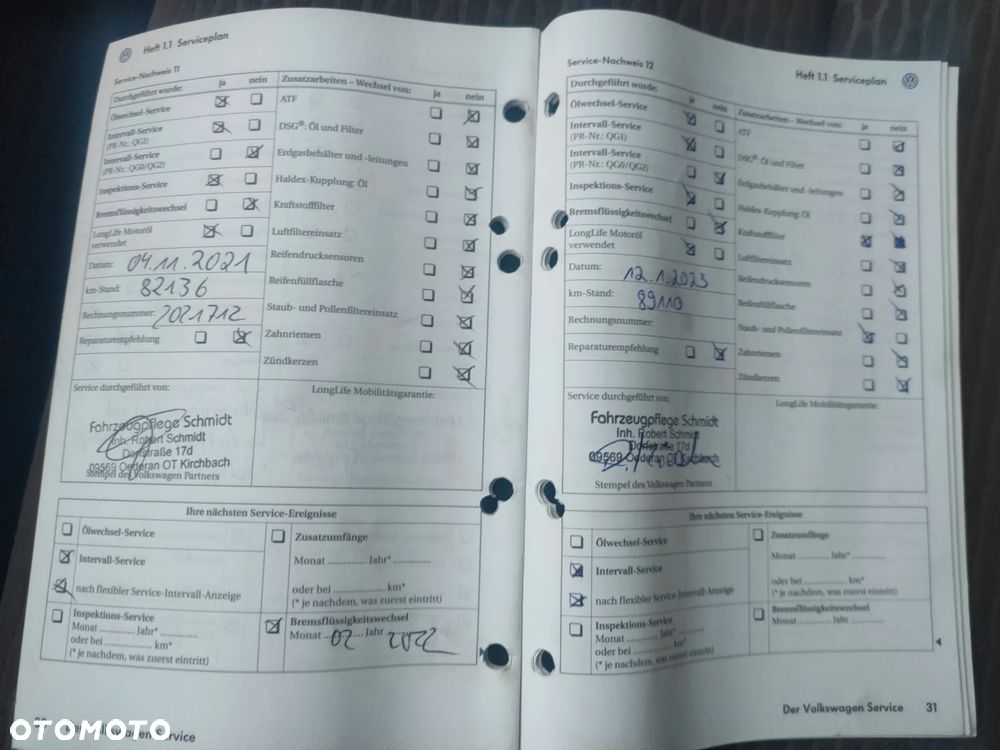 Heft 1.1 Serviceplan
Service-Nachweis 11
Durchgeführt wurde: ja nein
Ölwechsel-Service
Intervall-Service
(PR-Nr.: QG1)
Intervall-Service
(PR-Nr.: QG0/QG2)
Inspektions-Service
Bremsflüssigkeitswechsel
LongLife Motoröl
verwendet
Datum: 04.11.2021
km-Stand: 82136
Rechnungsnummer: 2021712
Reparaturempfehlung
Zusatzarbeiten – Wechsel von: ja nein
ATF
DSG®: Öl und Filter
Erdgasbehälter und -leitungen
Haldex-Kupplung: Öl
Kraftstofffilter
Luftfiltereinsatz
Reifendrucksensoren
Reifenfüllflasche
Staub- und Pollenfiltereinsatz
Zahnriemen
Zündkerzen
Service durchgeführt von:
Fahrzeugpflege Schmidt
Inh. Robert Schmidt
Dorfstraße 17d
09569 Oederan OT Kirchbach
Stempel des Volkswagen Partners
LongLife Mobilitätsgarantie:
Ihre nächsten Service-Ereignisse
Ölwechsel-Service
Intervall-Service
nach flexibler Service-Intervall-Anzeige
Inspektions-Service
Monat .............. Jahr* ..............
oder bei .................... km*
(* je nachdem, was zuerst eintritt)
Zusatzumfänge
Monat .............. Jahr* ..............
oder bei .................... km*
(* je nachdem, was zuerst eintritt)
Bremsflüssigkeitswechsel
Monat 02 Jahr 2022
Service
OTOMOTO
Service-Nachweis 12
Heft 1.1 Serviceplan
Durchgeführt wurde: ja nein
Ölwechsel-Service
Intervall-Service
(PR-Nr.: QG1)
Intervall-Service
(PR-Nr.: QG0/QG2)
Inspektions-Service
Bremsflüssigkeitswechsel
LongLife Motoröl
verwendet
Datum: 12.1.2023
km-Stand: 89110
Rechnungsnummer:
Reparaturempfehlung
Zusatzarbeiten – Wechsel von: ja nein
ATF
DSG®: Öl und Filter
Erdgasbehälter und -leitungen
Haldex-Kupplung: Öl
Kraftstofffilter
Luftfiltereinsatz
Reifendrucksensoren
Reifenfüllflasche
Staub- und Pollenfiltereinsatz
Zahnriemen
Zündkerzen
Service durchgeführt von:
Fahrzeugpflege Schmidt
Inh. Robert Schmidt
Dorfstraße 17d
09569 Oederan OT Kirchbach
Stempel des Volkswagen Partners
LongLife Mobilitätsgarantie:
Ihre nächsten Service-Ereignisse
Ölwechsel-Service
Intervall-Service
nach flexibler Service-Intervall-Anzeige
Inspektions-Service
Monat .............. Jahr* ..............
oder bei .................... km*
(* je nachdem, was zuerst eintritt)
Zusatzumfänge
Monat .............. Jahr* ..............
oder bei .................... km*
(* je nachdem, was zuerst eintritt)
Bremsflüssigkeitswechsel
Monat .............. Jahr ..............
Der Volkswagen Service 31